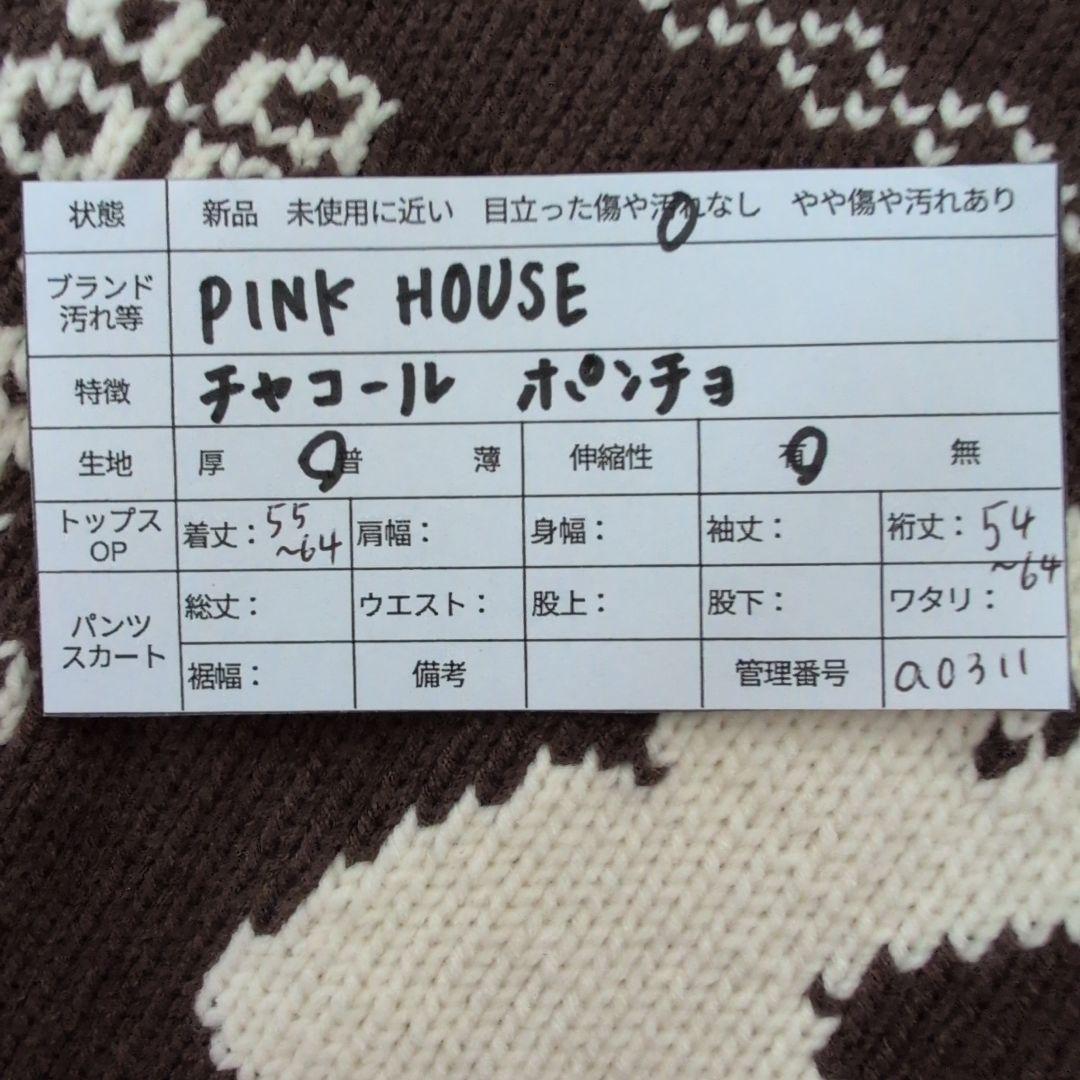 状態 新品 未使用に近い 目立った傷や汚れなし やや傷や汚れあり
ブランド
汚れ等 PINK HOUSE
特徴 チャコール ポンチョ
生地 厚 普 薄 伸縮性 有 無
トップス
OP 着丈：55
～64 肩幅： 身幅： 袖丈： 裄丈：54
～64
パンツ
スカート 総丈： ウエスト： 股上： 股下： ワタリ：
裾幅： 備考 管理番号 a0311